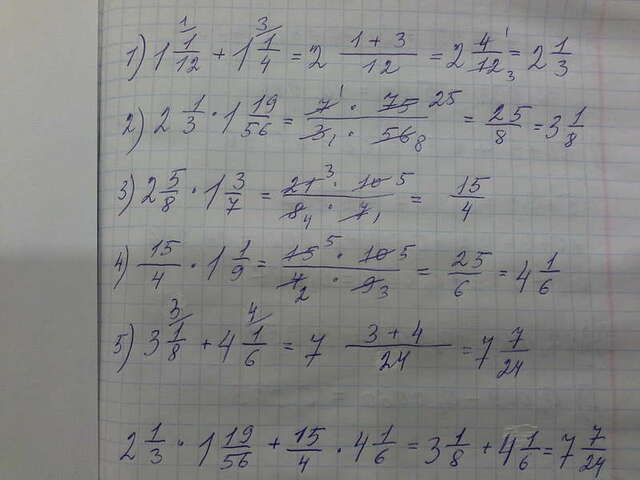 1) 1 1/12 + 1 1/4 = 2 (1 + 3)/12 = 2 4/12 = 2 1/3
2) 2 1/3 · 1 19/56 = (7 · 75)/(3 · 56) = 25/8 = 3 1/8
3) 2 5/8 · 1 3/7 = (21 · 10)/(8 · 7) = 15/4
4) 15/4 · 1 1/9 = (15 · 10)/(4 · 9) = 25/6 = 4 1/6
5) 3 1/8 + 4 1/6 = 7 (3 + 4)/24 = 7 7/24
2 1/3 · 1 19/56 + 15/4 · 4 1/6 = 3 1/8 + 4 1/6 = 7 7/24